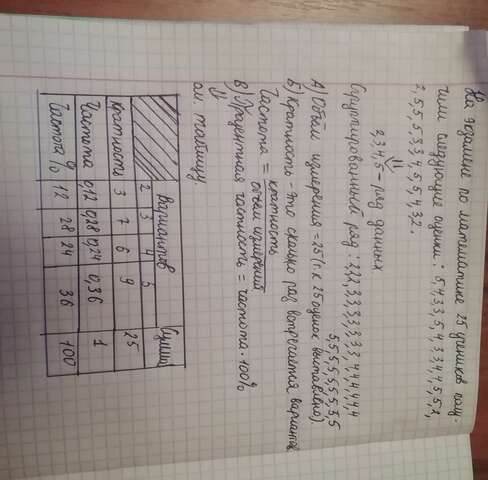 На экзамене по математике 25 учеников полу-
чили следующие оценки: 5,4,3,3,5,4,3,3,4,4,5,5,2,
2,5,5,5,3,3,4,5,5,4,3,2.
⇓
2,3,4,5 - ряд данных
Сгруппированный ряд: 2,2,2,3,3,3,3,3,3,3,4,4,4,4,4,4
5,5,5,5,5,5,5,5,5
А) Объём измерения = 25 (т.к 25 оценок выставлено)
Б) Кратность - это сколько раз встречается варианта
Частота = кратность
объём измерений
В) Процентная частность = частота · 100%
⇓
см. таблицу
Вариантов Сумма
2 3 4 5
Кратность 3 7 6 9 25
Частота 0,12 0,28 0,24 0,36 1
Частота % 12 28 24 36 100